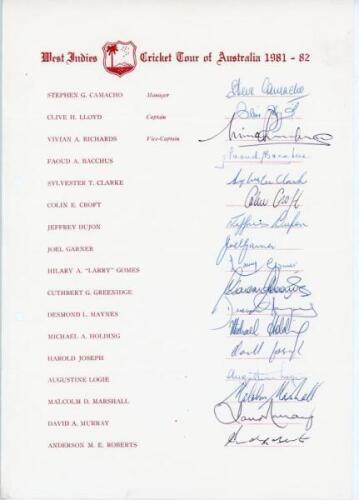 West Indies Cricket Tour of Australia 1981 - 82
STEPHEN G. CAMACHO Manager Steve Camacho
CLIVE H. LLOYD Captain
VIVIAN A. RICHARDS Vice-Captain
FAOUD A. BACCHUS Faoud Bacchus
SYLVESTER T. CLARKE Sylvester Clarke
COLIN E. CROFT Colin Croft
JEFFREY DUJON Jeffrey Dujon
JOEL GARNER Joel Garner
HILARY A. "LARRY" GOMES Larry Gomes
CUTHBERT G. GREENIDGE
DESMOND L. HAYNES
MICHAEL A. HOLDING Michael Holding
HAROLD JOSEPH Harold Joseph
AUGUSTINE LOGIE Augustine Logie
MALCOLM D. MARSHALL Malcolm Marshall
DAVID A. MURRAY David Murray
ANDERSON M. E. ROBERTS